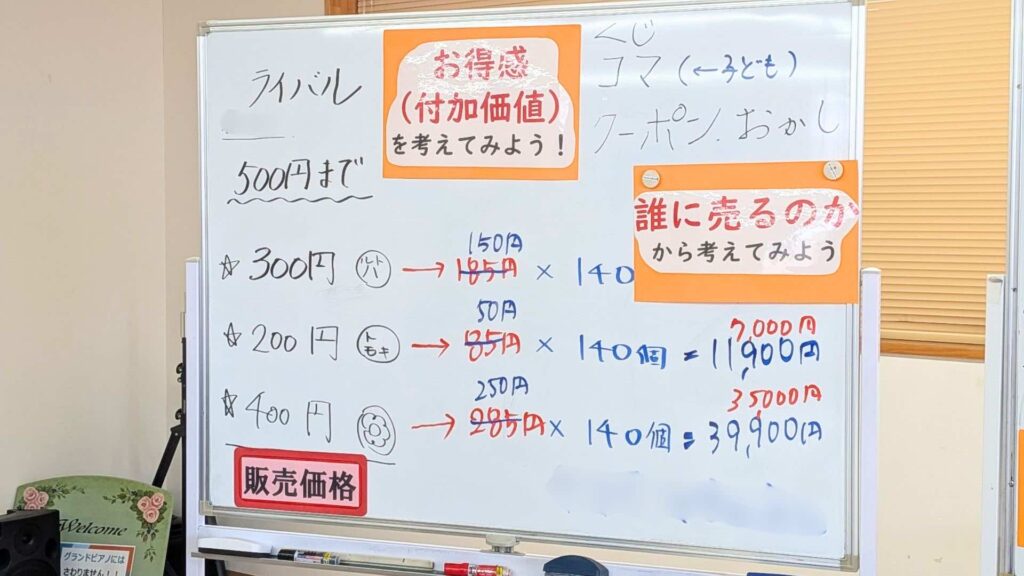 ライバル
500円まで
お得感
(付加価値)
を考えてみよう！
くじ
コマ (←子ども)
クーポン.おかし
誰に売るのか
から考えてみよう
150円
☆300円 → 185円 × 140
50円 7000円
☆200円 トモキ → 85円 × 140個 = 11,900円
250円 35000円
☆400円 → 285円 × 140個 = 39,900円
販売価格
Welcome
グランドピアノには
さわりません！！